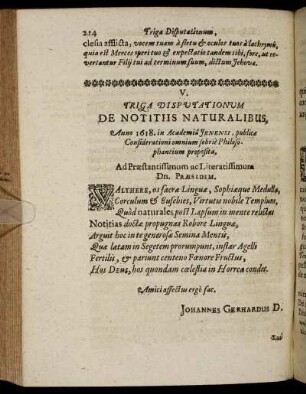 214 Triga Disputationum,
clesia afflicta, vocem tuam à fletu & oculos tuos à lachrymis,
quia est Merces operi tuo & expectatio tandem tibi, fore, ut re-
vertantur Filij tui ad terminum suum, dictum Jehova.
V.
TRIGA DISPUTATIONUM
DE NOTITIIS NATURALIBUS,
Anno 1618. in Academiâ JENENSI. publicæ
Considerationi omnium sobriè Philoso-
phantium proposita,
Ad Præstantissimum ac Literatissimum
DN. PRÆSIDEM.
VALTHERE, os sacræ Linguæ, Sophiæque Medulla,
Corculum & Eusebies, Virtutis nobile Templum,
Quòd naturales, post Lapsum in mente relictas
Notitias doctæ propugnas Robore Linguæ,
Arguit hoc in te generosa Semina Mentis,
Quæ latam in Segetem prorumpunt, instar Agelli
Fertilis, & pariunt centeno Fœnore Fructus,
Hos DEUS, hos quondam cœlestia in Horrea condet.
Amici affectus ergò fac.
JOHANNES GERHARDUS D.